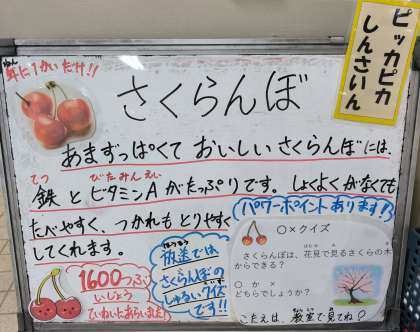 ピッカピカ
しんさいん
年に1かいだけ!!
ねん
さくらんぼ
あまずっぱくて おいしい さくらんぼには、
てつ びたみんえい
鉄 と ビタミンA が たっぷりです。しょくよくがなくても
たべやすく、つかれも とりやすく
してくれます。
パワーポイント あります!!
1600つぶ
いじょう
ていねいにあらいました!
ほうそう
放送では
さくらんぼの
しゅるいクイズ
です!!
○×クイズ
さくらんぼは、花見で見るさくらの木
はなみ
からできる?
○ か ×
どちらでしょうか?
こたえは、教室で見てね♪